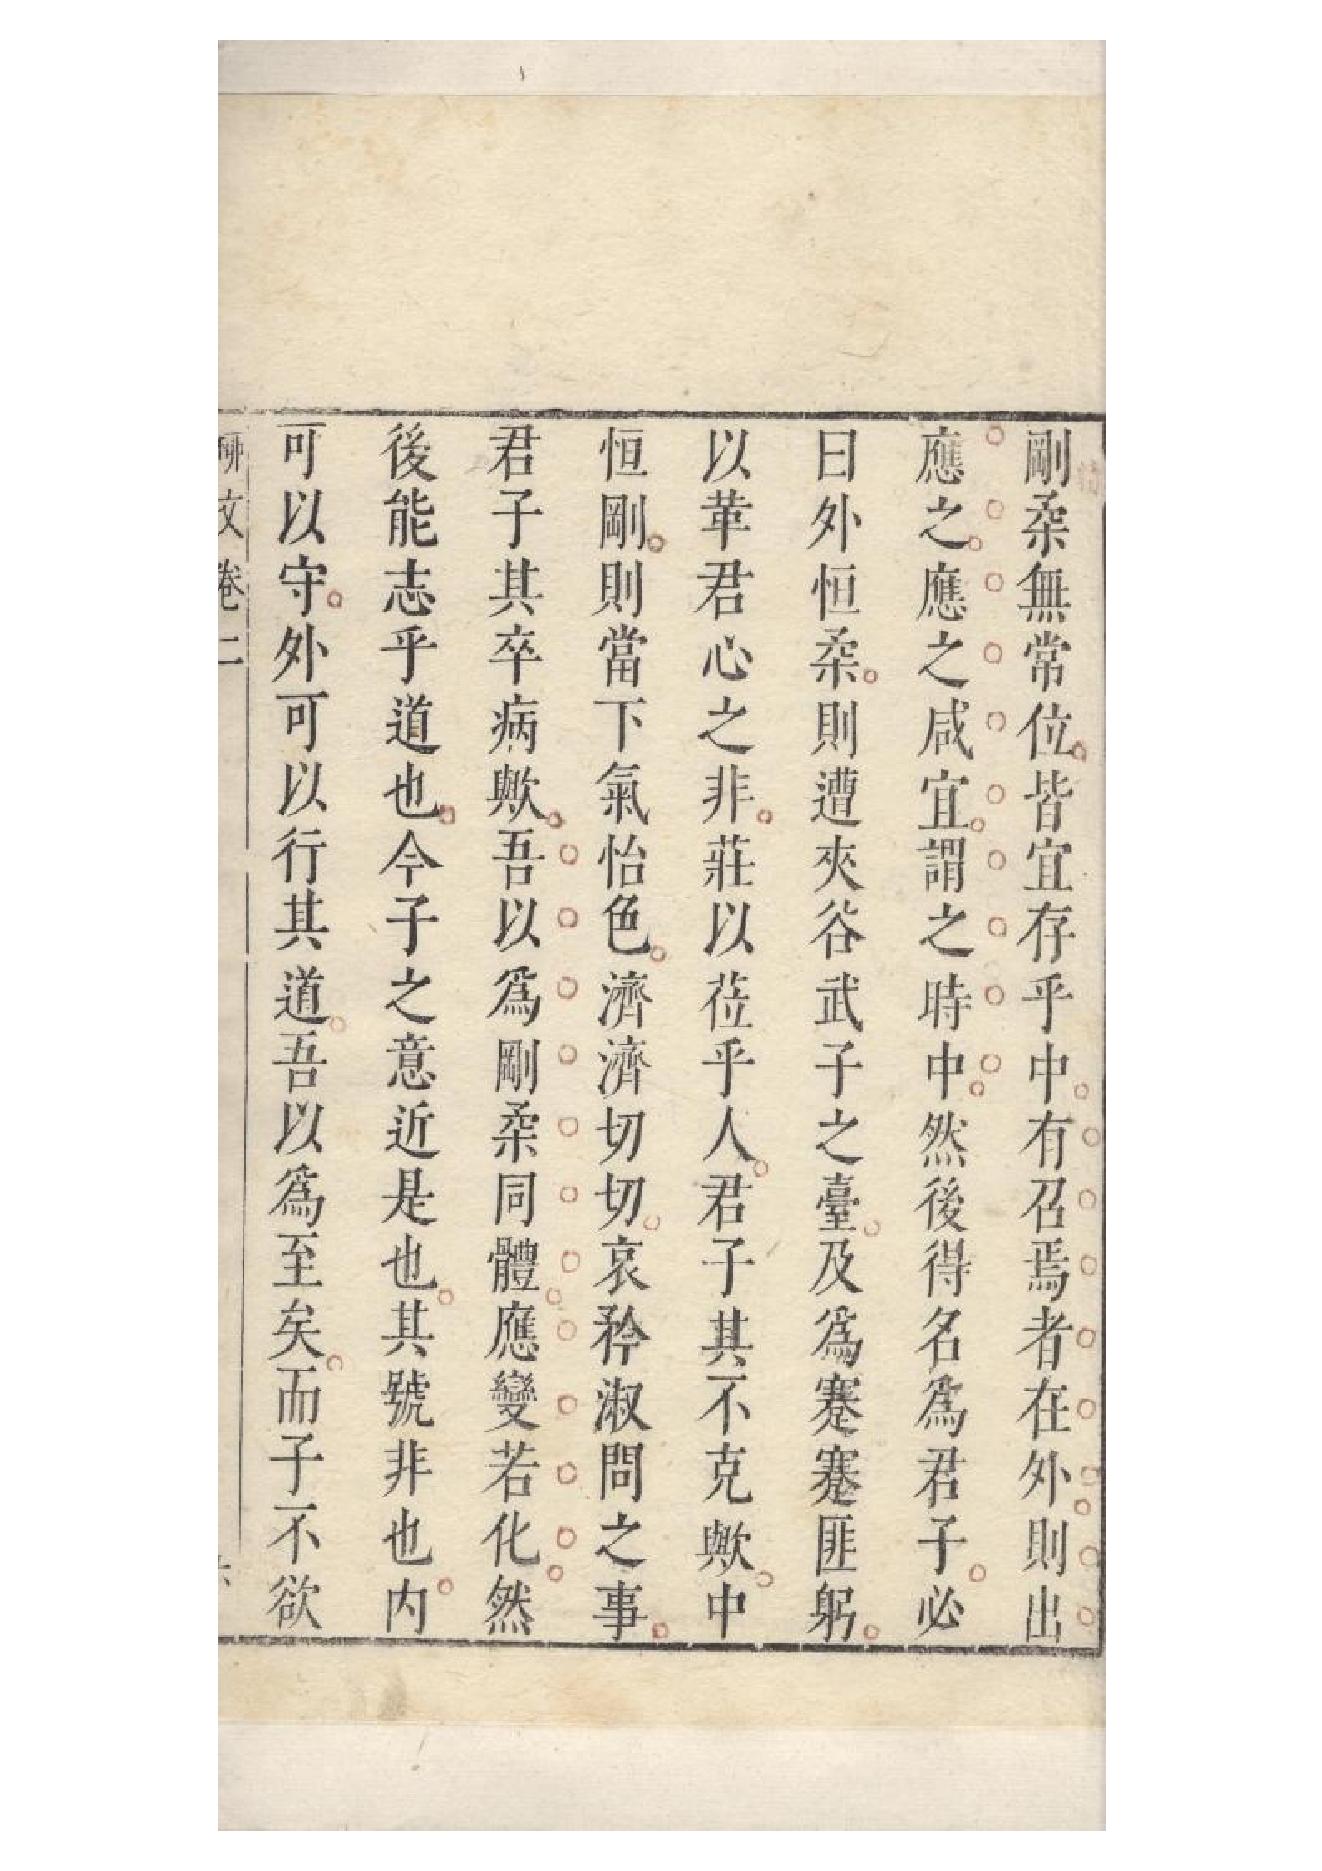 剛柔無常位皆宜存乎中有召焉者在外則出
應之應之咸宜謂之時中然後得名爲君子必
曰外恒柔則遭夾谷武子之臺及爲蹇蹇匪躬
以革君心之非莊以莅乎人君子其不克歟中
恒剛則當下氣怡色濟濟切切哀矜淑問之事
君子其卒病歟吾以爲剛柔同體應變若化然
後能志乎道也今子之意近是也其號非也內
可以守外可以行其道吾以爲至矣而子不欲
柳文卷二
六